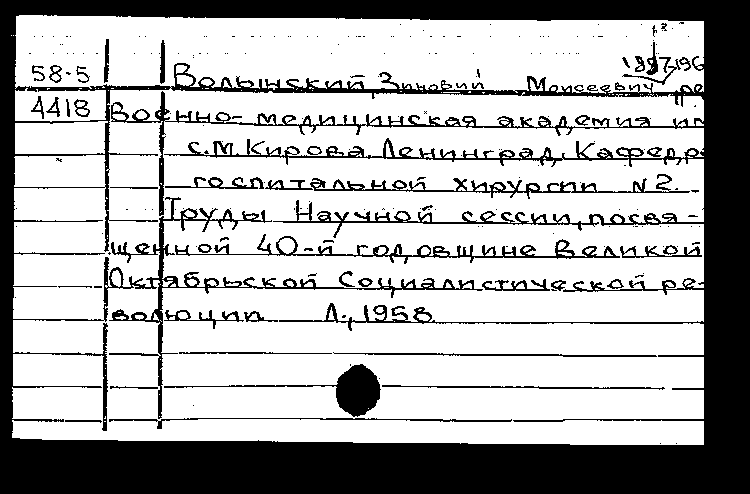 1897-196
58-5 Волынский, Зиновий Моисеевич, ре
4418 Военно-медицинская академия им
С.М.Кирова. Ленинград. Кафедра
госпитальной хирургии N2.
Труды Научной сессии, посвя-
щенной 40-й годовщине Великой
Октябрьской Социалистической ре-
волюции Л., 1958